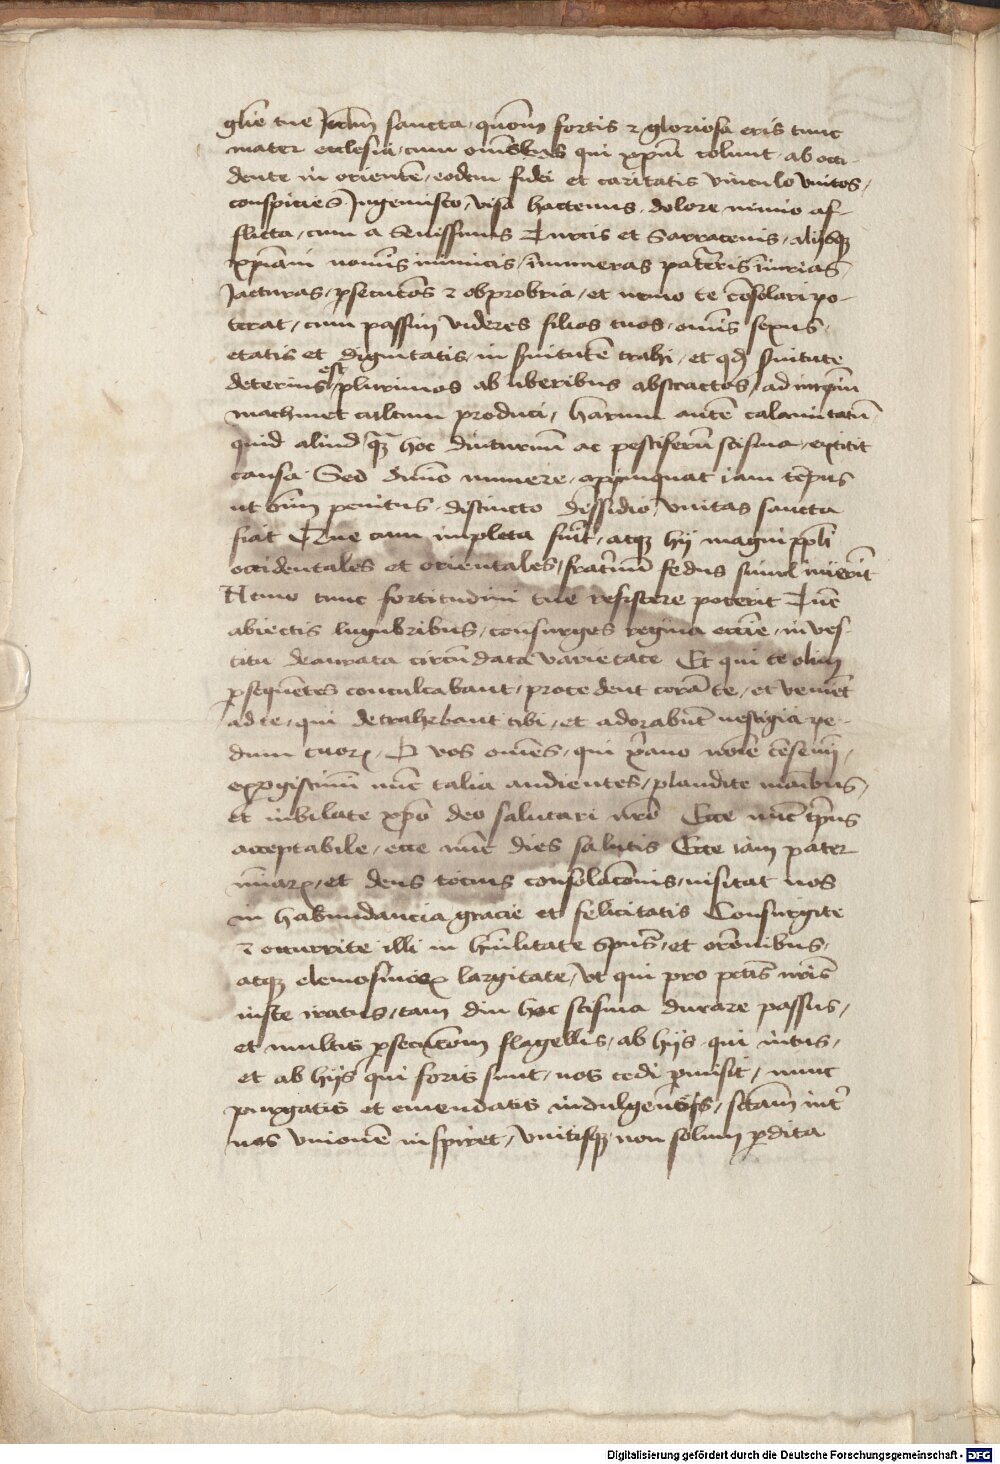 glie tue Jerlm sancta, quom fortis ⁊ gloriosa eris tunc
mater ecclesia, cum oms qui xpm colunt ab occi-
dente in oriente, eodem fidei et caritatis vinculo vnitos,
conspicies Ingemisco, visa hactenus, dolore nimio af-
flicta, cum a seuissimis Turcis et Sarracenis, alijsq
xpiani nominis inimicis, innumeras patereris iniurias
Jacturas, psecutos ⁊ obprobria, et nemo te cosolari po-
terat, cum passim videres filios tuos, omis sexus,
etatis et dignitatis, in suitute trahi, et qd suitute
deterius est, plurimos ab uberibus abstractos, ad
machmet cultum produci, harum aute calamitatu
quid aliud qua hoc diuturnu ac pestiferu scisma, extitit
causa Sed diuino munere, appinquat iam tempus
ut penitus, distincto dissidio, vnitas sancta
fiat Que cum impleta fuit, atq hij magni ppli
occidentales et orientales, fraternu fedus simul inierit
Nemo tunc fortitudini tue resistere poterit Tuc
abiectis lugubribus, consurges regina eccie, in ves-
titu deaurata circudata varietate Et qui te olim
psequetes conculcabant, procedent cora te, et veniet
ad te, qui detrahebant tibi, et adorabut uestigia pe-
dum tuor O vos omes, qui xiano noie cesemi,
expgiscimi nuc talia audientes, plaudite maibus,
et iubilate xpo deo salutari nro Ecce nuc tpus
acceptabile, ecce nuc dies salutis Ecce iam pater
miar, et deus tocius consolacois, uisitat nos
in habundancia gracie et felicitatis Consurgite
⁊ occurrite illi in humilitate spus, et oroibus,
atq elemosinar largitate, vt qui pro pctis nris
iuste iratus, tam diu hoc scisma durare passus,
et multis psecutom flagellis, ab hijs qui intus,
et ab hijs qui foris sunt, nos cedi pmisit, nunc
purgatis et emendatis indulgens, sctam int
nos vnione inspiret, vnitisq non solum pdita
Digitalisierung gefördert durch die Deutsche Forschungsgemeinschaft - DFG